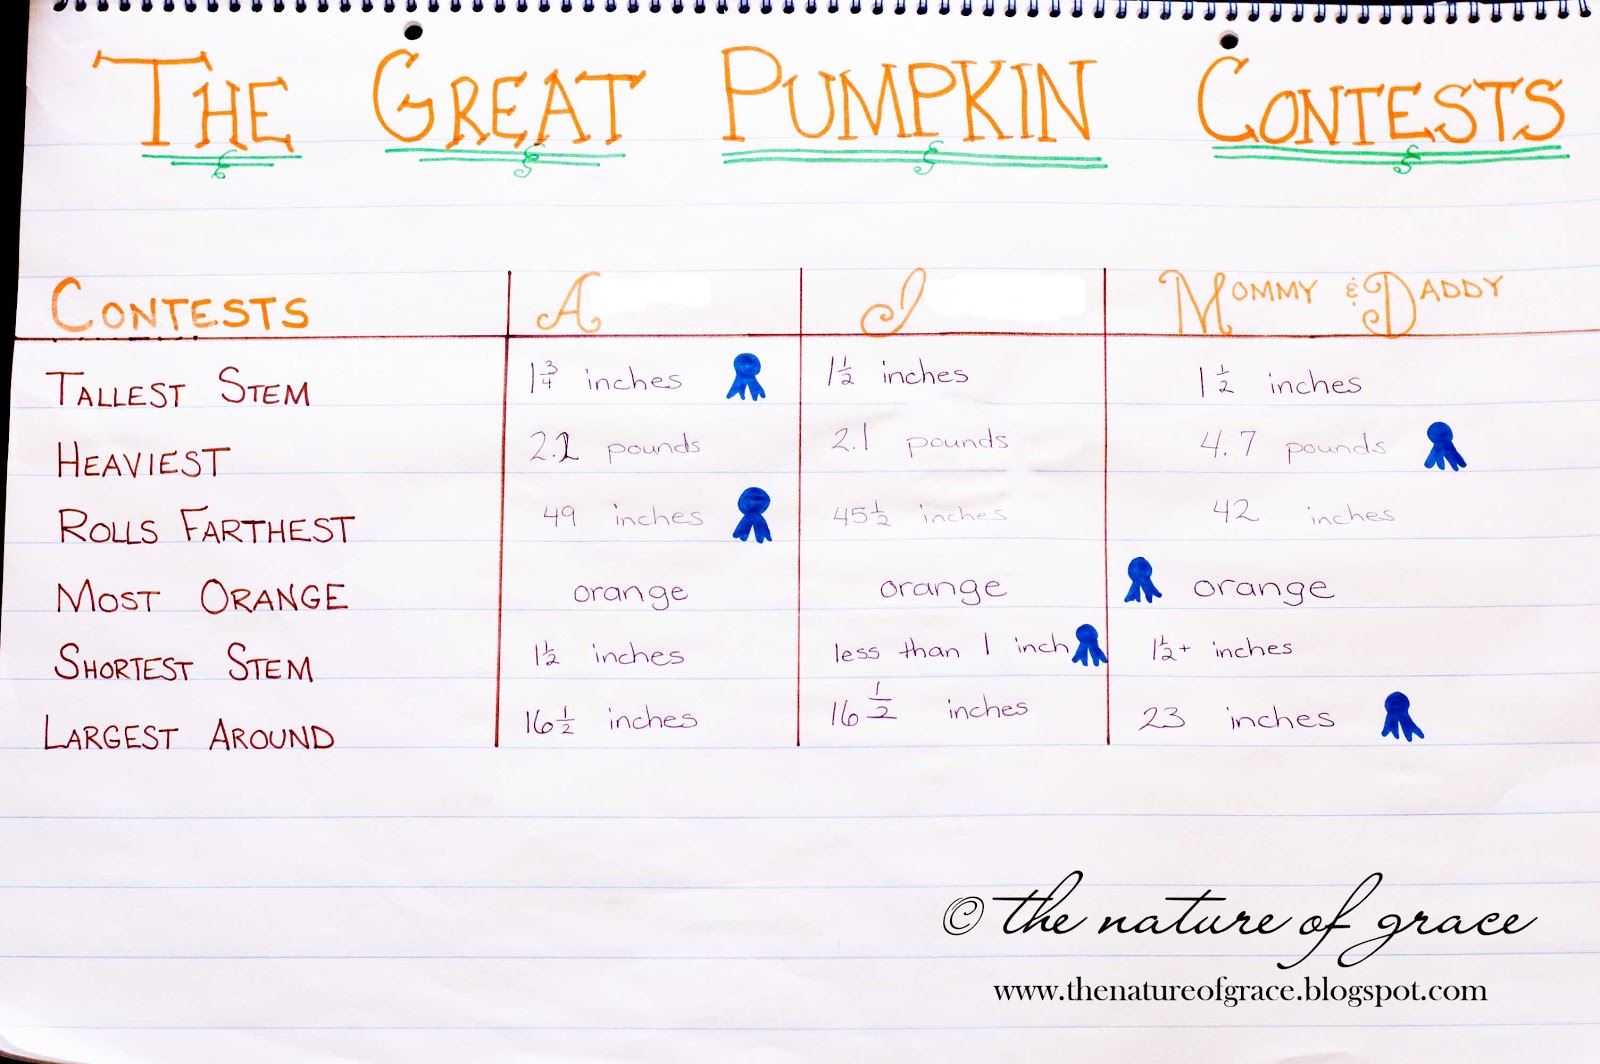 THE GREAT PUMPKIN CONTESTS
CONTESTS A J MOMMY & DADDY
TALLEST STEM 1 3/4 inches 1 1/2 inches 1 1/2 inches
HEAVIEST pounds 2.1 pounds 4.7 pounds
ROLLS FARTHEST 49 inches 45 1/2 inches 42 inches
MOST ORANGE orange orange orange
SHORTEST STEM 1 1/2 inches less than 1 inch 1 1/2+ inches
LARGEST AROUND 16 1/2 inches 16 1/2 inches 23 inches
© the nature of grace
www.thenatureofgrace.blogspot.com